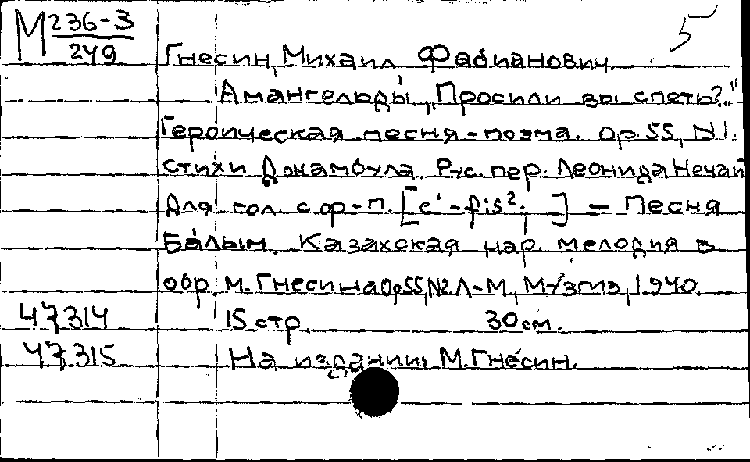 М 236-3
249
5
Гнесин, Михаил Фабианович
Амангельды „Просили вы спеть?"
Героическая песня-поэма. Ор. 55, N1.
Стихи Джамбула. Рус. пер. Леонида Нечай
Для гол. с ф-п. [c'-fis². ] – Песня
Балым. Казахская нар. мелодия в
обр. М. Гнесина Ор55, №2 Л-М, Музгиз, 1940.
47314 15 стр. 30 см.
47315 На издании: М. Гнесин.